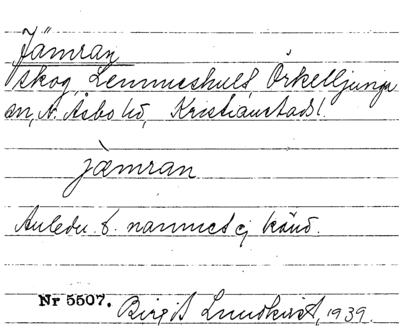 Jämran
skog, Lemmeshult, Örkelljunga
sn, N. Åsbo hd, Kristianstads l.
jæmran
Anledn. t. namnet ej känd.
Nr 5507. Birgit Lundkvist, 1939.